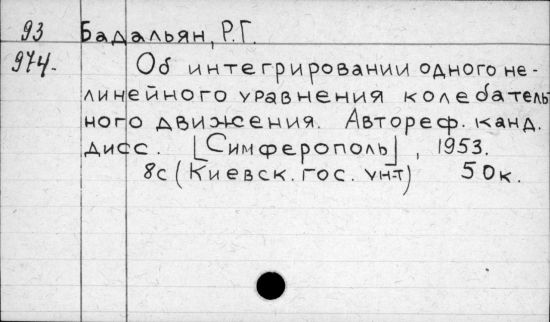 93 Бадальян, Р.Г.
974. Об интегрировании одного не-
линейного уравнения колебатель
ного движения. Автореф. канд.
дисс. [Симферополь], 1953.
8с (Киевск. гос. ун-т) 50к.